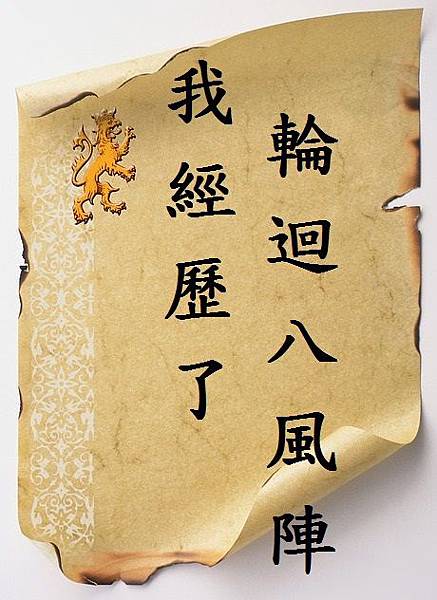 輪迴八風陣
我經歷了